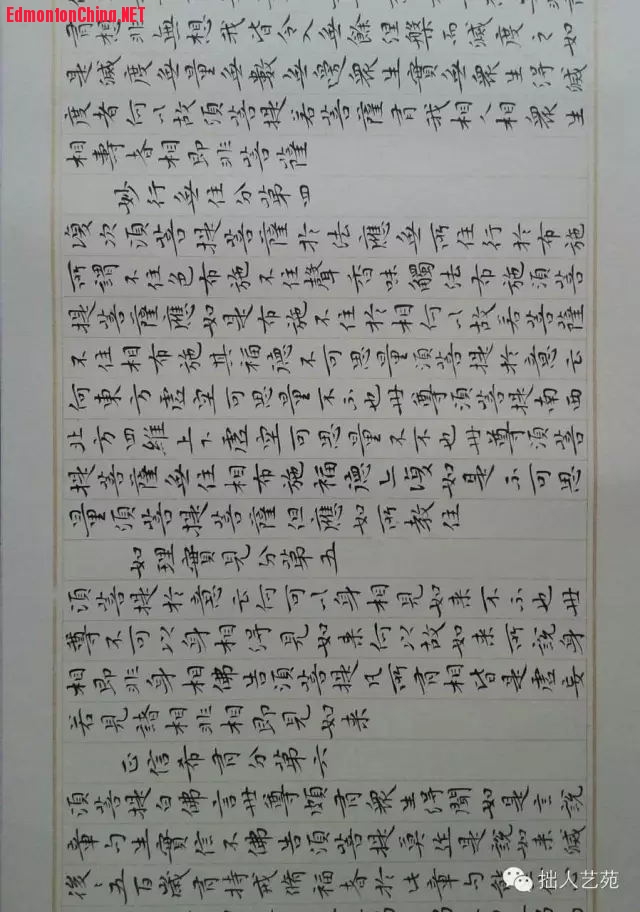 EdmontonChina.NET
有想非無想我皆令入無餘涅槃而滅度之如
是滅度無量無數無邊衆生實無衆生得滅
度者何以故須菩提若菩薩有我相人相衆生
相壽者相即非菩薩
妙行無住分第四
復次須菩提菩薩於法應無所住行於布施
所謂不住色布施不住聲香味觸法布施須菩
提菩薩應如是布施不住於相何以故若菩薩
不住相布施其福德不可思量須菩提於意云
何東方虛空可思量不不也世尊須菩提南西
北方四維上下虛空可思量不不也世尊須菩
提菩薩無住相布施福德亦復如是不可思
量須菩提菩薩但應如所教住
如理實見分第五
須菩提於意云何可以身相見如来不不也世
尊不可以身相得見如来何以故如来所說身
相即非身相佛告須菩提凡所有相皆是虛妄
若見諸相非相即見如来
正信希有分第六
須菩提白佛言世尊頗有衆生得聞如是言說
章句生實信不佛告須菩提莫作是說如来滅
後〻五百歲有持戒脩福者於此章句
拙人艺苑